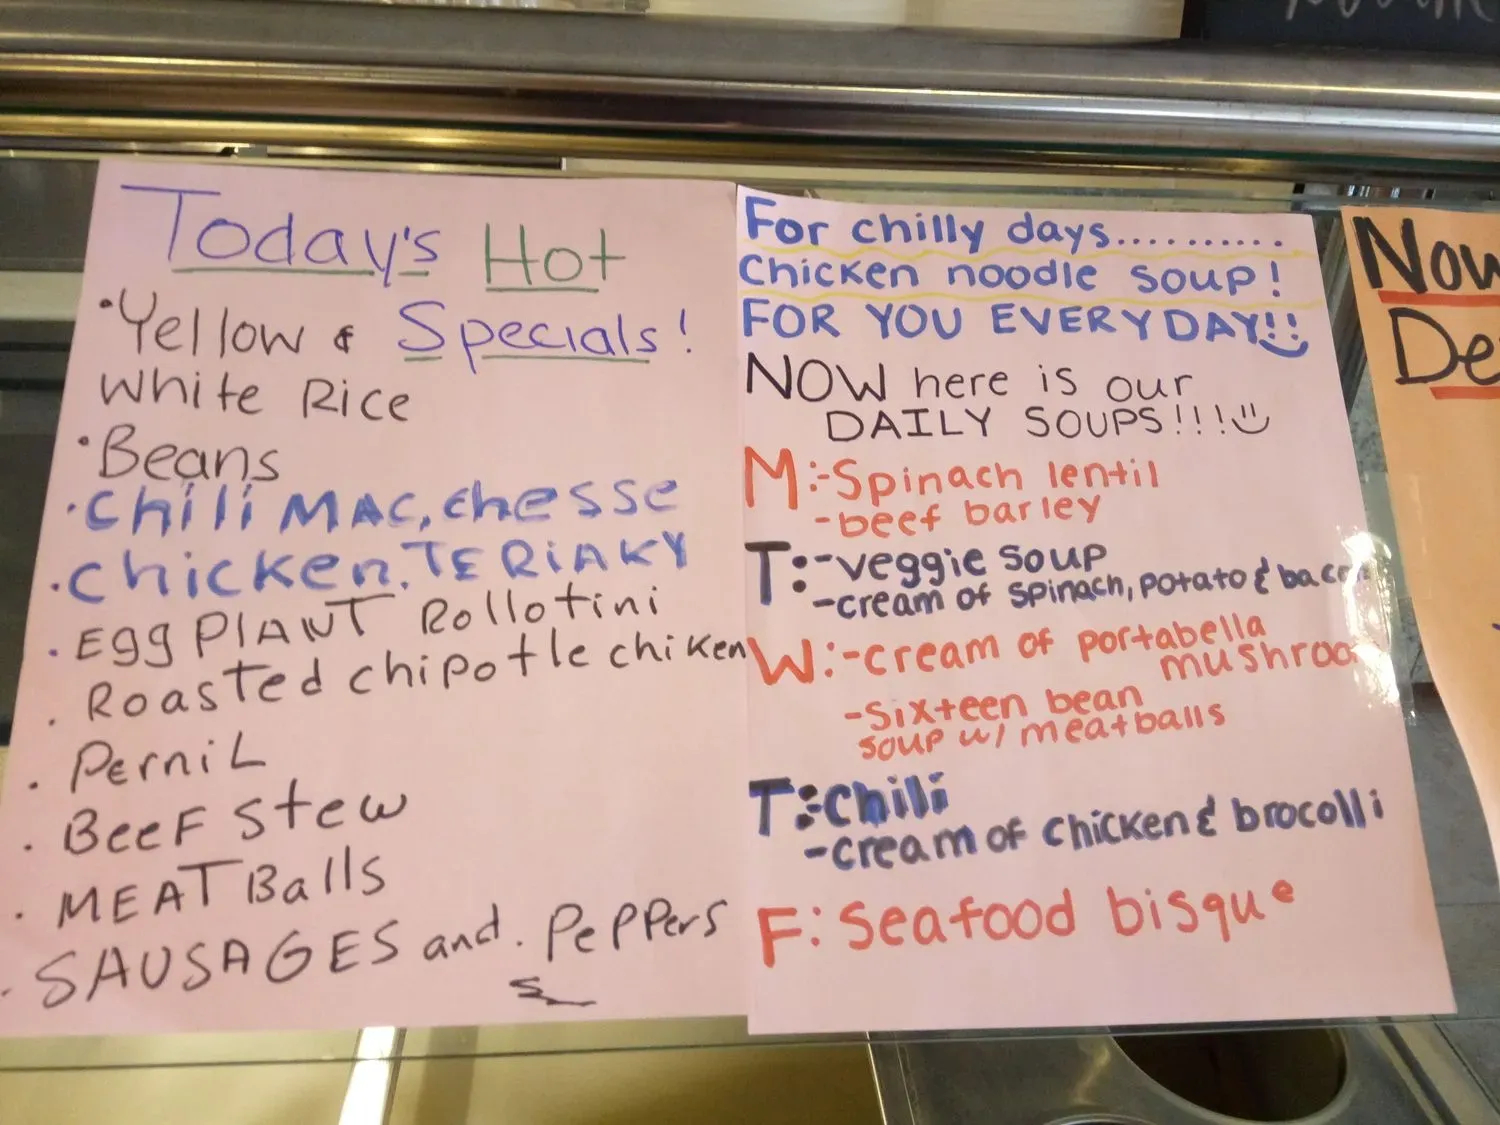 Today's Hot
Specials!
•Yellow &
White Rice
•Beans
•Chili MAC, chesse
•chicken.TERiAKY
•Egg PlANT Rollotini
•Roasted chipotle chiken
•PerniL
•BeeF stew
•MEAT Balls
•SAUSAGES and. PePPers
For chilly days..........
Chicken noodle soup!
FOR YOU EVERYDAY!!
NOW here is our
DAILY SOUPS!!!
M:-Spinach lentil
-beef barley
T:-veggie soup
-cream of spinach, potato & bacon
W:-cream of portabella
mushroo
-Sixteen bean
soup w/ meatballs
T:chili
-cream of chicken & brocolli
F: Seafood bisque
Now
De